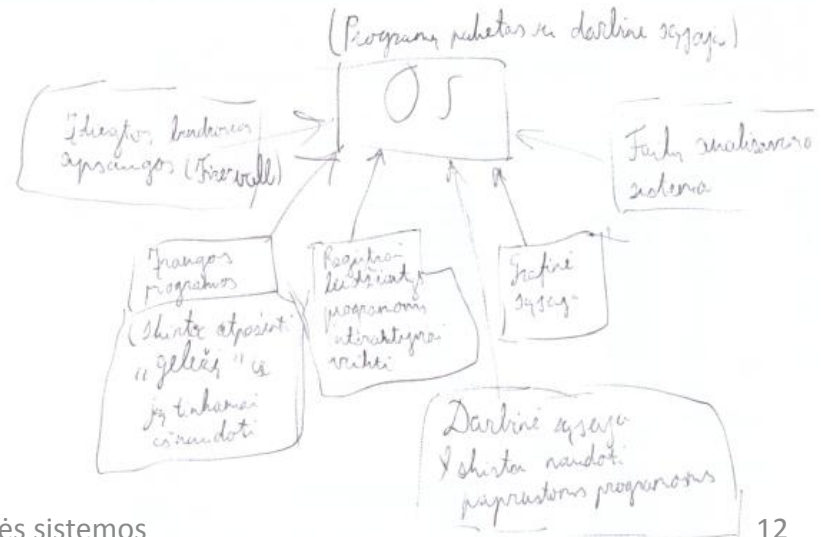 (Programų paketas su darbine sąsaja)
OS
Įdiegtos
apsaugos (Firewall)
Failų analizavimo
sistema
Įrangos
programos
(Skirta atpažinti
„geležį“ ir
ją tinkamai
išnaudoti
Registrai
leidžiantys
programoms
interaktyviai
veikti
Grafinė
sąsaja
Darbinė sąsaja
skirta naudoti
paprastoms programoms
ės sistemos
12